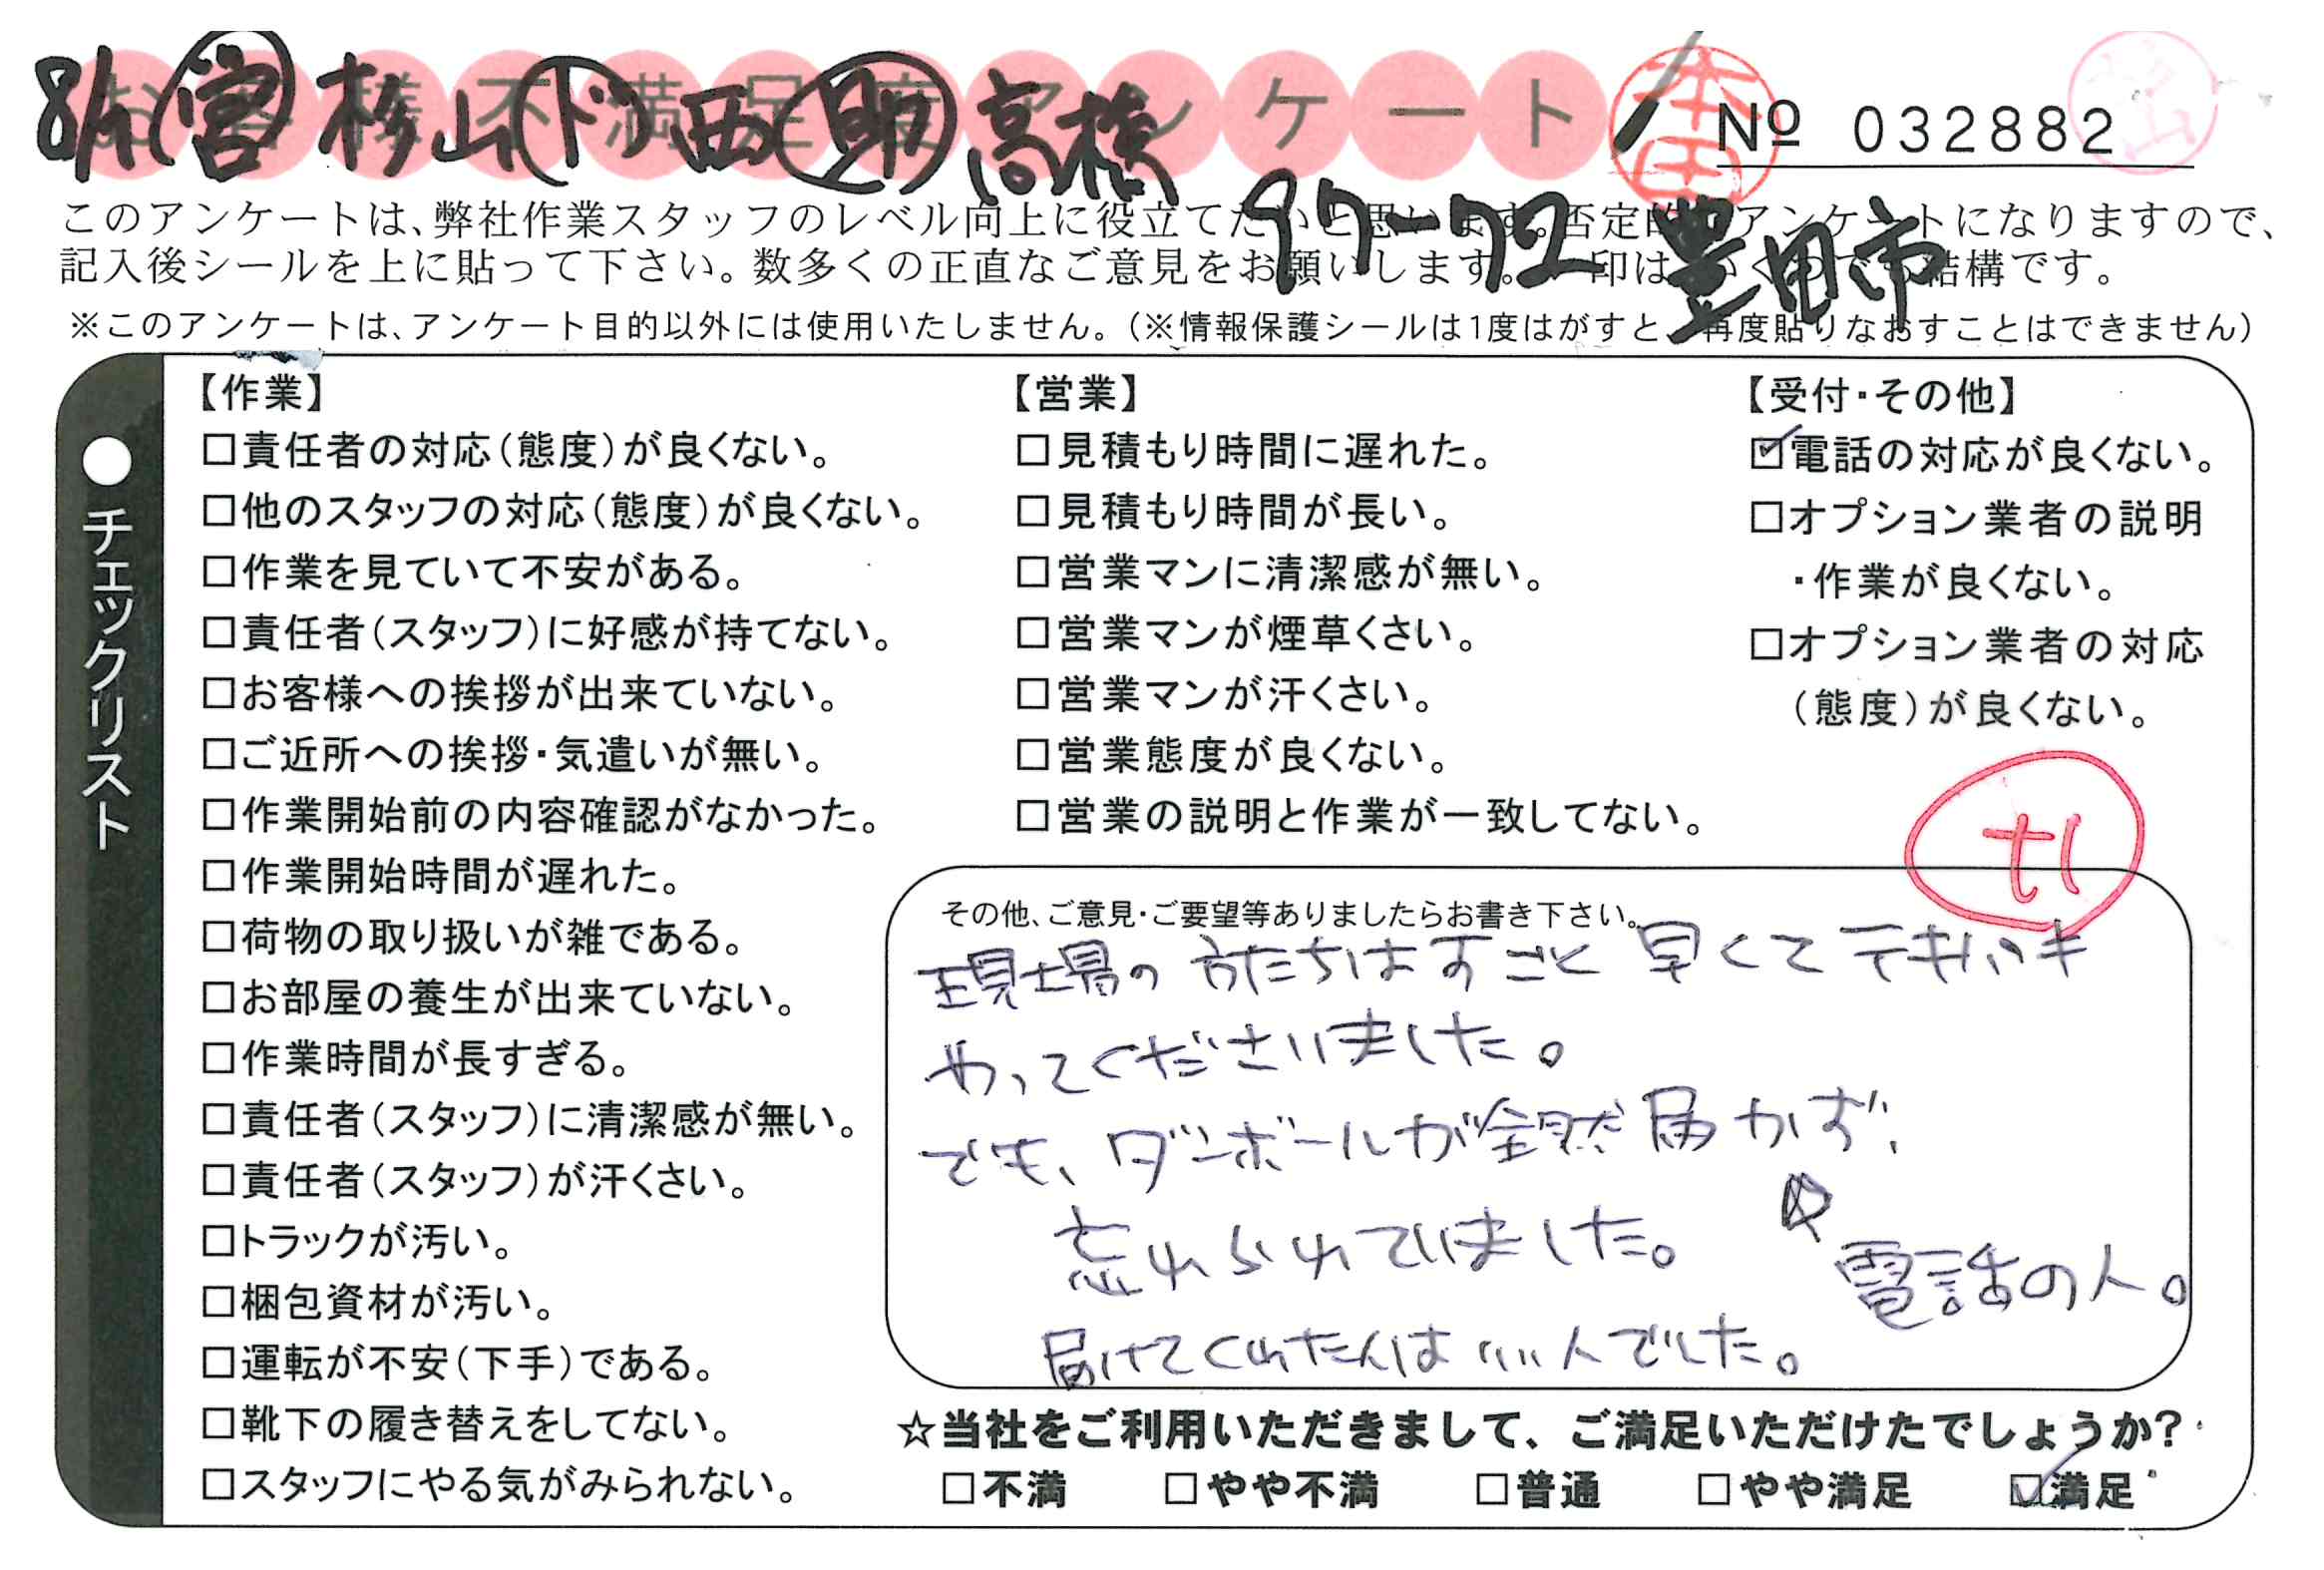 お客様不満足度アンケート
8/1 宮 杉山 ド 西 明 高橋
本田
№ 032882
杉山
97-72 豊田市
このアンケートは、弊社作業スタッフのレベル向上に役立てたいと思います。否定的なアンケートになりますので、
記入後シールを上に貼って下さい。数多くの正直なご意見をお願いします。 印はいくつでも結構です。
※このアンケートは、アンケート目的以外には使用いたしません。(※情報保護シールは1度はがすと、再度貼りなおすことはできません)
●チェックリスト
【作業】
□責任者の対応(態度)が良くない。
□他のスタッフの対応(態度)が良くない。
□作業を見ていて不安がある。
□責任者(スタッフ)に好感が持てない。
□お客様への挨拶が出来ていない。
□ご近所への挨拶・気遣いが無い。
□作業開始前の内容確認がなかった。
□作業開始時間が遅れた。
□荷物の取り扱いが雑である。
□お部屋の養生が出来ていない。
□作業時間が長すぎる。
□責任者(スタッフ)に清潔感が無い。
□責任者(スタッフ)が汗くさい。
□トラックが汚い。
□梱包資材が汚い。
□運転が不安(下手)である。
□靴下の履き替えをしてない。
□スタッフにやる気がみられない。
【営業】
□見積もり時間に遅れた。
□見積もり時間が長い。
□営業マンに清潔感が無い。
□営業マンが煙草くさい。
□営業マンが汗くさい。
□営業態度が良くない。
□営業の説明と作業が一致してない。
【受付・その他】
☑電話の対応が良くない。
□オプション業者の説明
・作業が良くない。
□オプション業者の対応
(態度)が良くない。
その他、ご意見・ご要望等ありましたらお書き下さい。
現場の方たちはすごく早くてテキパキ
やってくださいました。
でも、ダンボールが全然届かず、
忘れられていました。
電話の人。
届けてくれた人はいい人でした。
☆当社をご利用いただきまして、ご満足いただけたでしょうか?
□不満 □やや不満 □普通 □やや満足 ☑満足